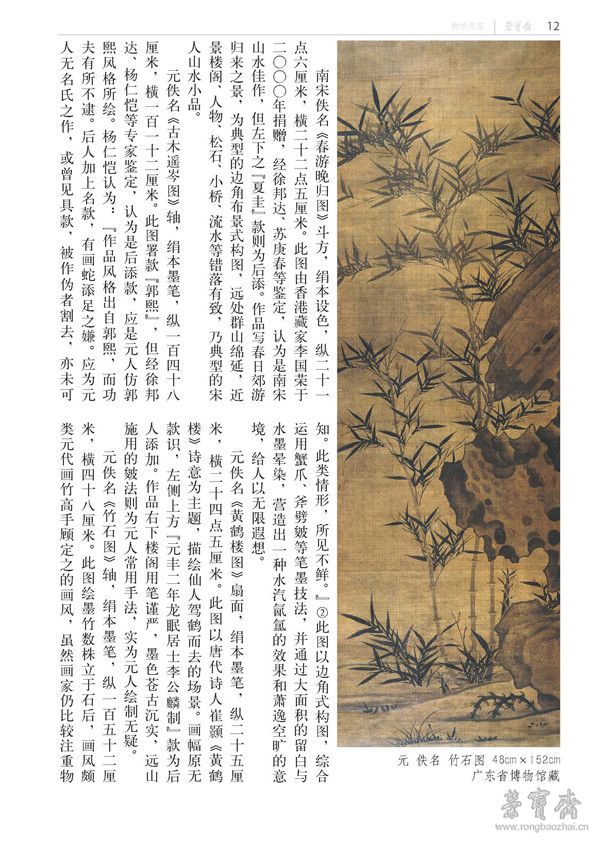 榮寳齋 12
南宋佚名《春游晚归图》斗方，绢本设色，纵二十一
点六厘米，横二十二点五厘米。此图由香港藏家李国荣于
二〇〇〇年捐赠，经徐邦达、苏庚春等鉴定，认为是南宋
山水佳作，但左下之『夏圭』款则为后添。作品写春日郊游
归来之景，为典型的边角布景式构图，远处群山绵延，近
景楼阁、人物、松石、小桥、流水等错落有致，乃典型的宋
人山水小品。
元佚名《古木遥岑图》轴，绢本墨笔，纵一百四十八
厘米，横一百一十二厘米。此图署款『郭熙』，但经徐邦
达、杨仁恺等专家鉴定，认为是后添款，应是元人仿郭
熙风格所绘。杨仁恺认为：『作品风格出自郭熙，而功
夫有所不逮。后人加上名款，有画蛇添足之嫌。应为元
人无名氏之作，或曾见具款，被作伪者割去，亦未可
知。此类情形，所见不鲜。』②此图以边角式构图，综合
运用蟹爪、斧劈皴等笔墨技法，并通过大面积的留白与
水墨晕染，营造出一种水汽氤氲的效果和萧逸空旷的意
境，给人以无限遐想。
元佚名《黄鹤楼图》扇面，绢本墨笔，纵二十五厘
米，横二十四点五厘米。此图以唐代诗人崔颢《黄鹤
楼》诗意为主题，描绘仙人驾鹤而去的场景。画幅原无
款识，左侧上方『元丰二年龙眠居士李公麟制』款为后
人添加。作品右下楼阁用笔谨严，墨色苍古沉实，远山
施用的皴法则为元人常用手法，实为元人绘制无疑。
元佚名《竹石图》轴，绢本墨笔，纵一百五十二厘
米，横四十八厘米。此图绘墨竹数株立于石后，画风颇
类元代画竹高手顾定之的画风，虽然画家仍比较注重物
元 佚名 竹石图 48cm×152cm
广东省博物馆藏
榮寶齋
www.rongbaozhai.cn